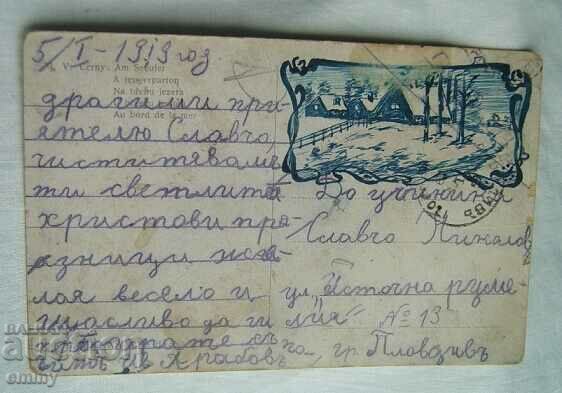 5/I-1919 год
V. Cerny: Am Seeufer
A tengerparton
Na břehu jezera
Au bord de la mer
драгими при-
ятелю Славчо,
чиститяваме
ти светлитѣ
христови пра-
зници
лая весело и
щасливо да ги
До ученика
Славчо
ул. "Источна руме-
лия" № 13
гр. Пловдивъ